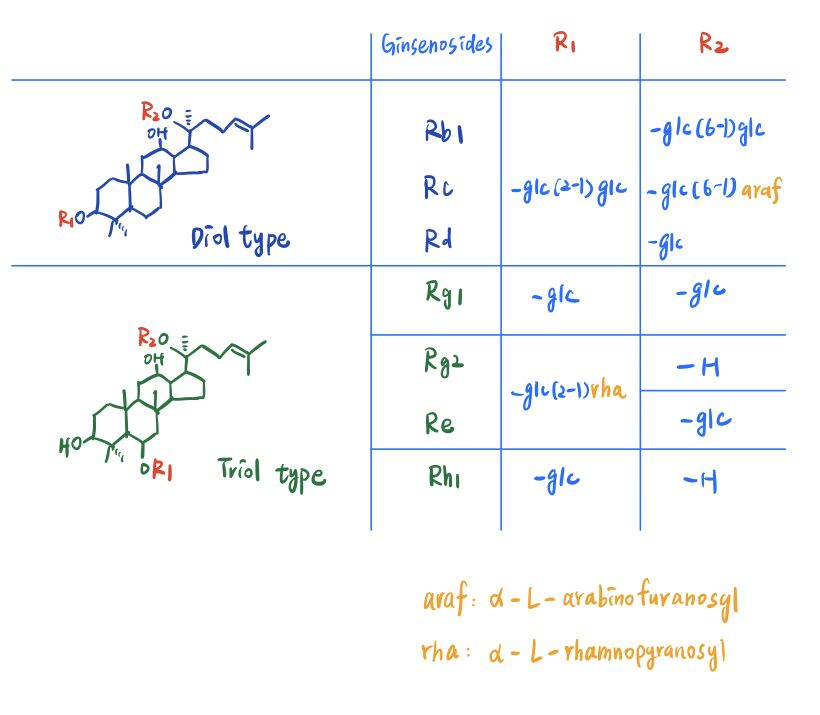 Ginsenosides R1 R2
R2O
OH
R1O
Diol type
Rb1 -glc(6-1)glc
Rc -glc(2-1)glc -glc(6-1)araf
Rd -glc
Rg1 -glc -glc
R2O
OH
HO
OR1
Triol type
Rg2 -H
-glc(2-1)rha
Re -glc
Rh1 -glc -H
araf: α-L-arabinofuranosyl
rha: α-L-rhamnopyranosyl